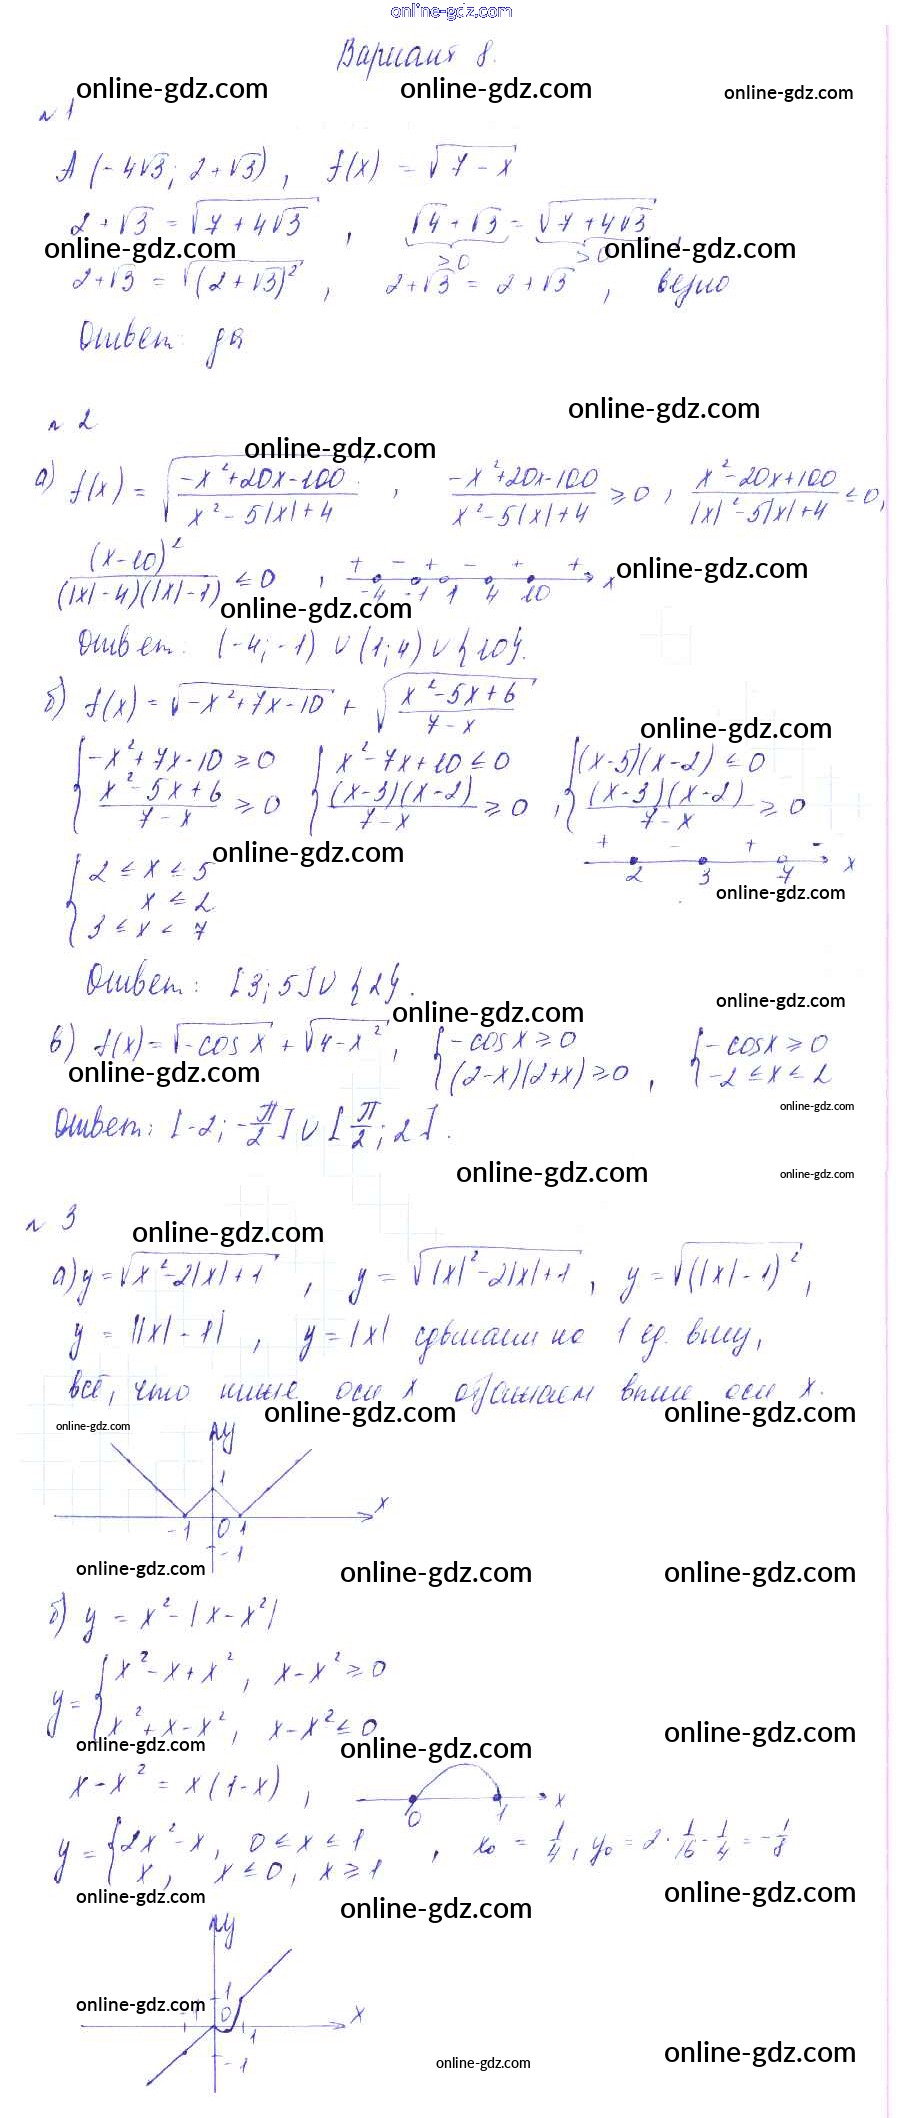 online-gdz.com
Вариант 8.
online-gdz.com online-gdz.com online-gdz.com
№ 1
A (-4√3; 2+√3), f(x) = √(7-x)
2+√3 = √(7+4√3), √4+√3 = √(7+4√3),
online-gdz.com ≥0 ≥0 online-gdz.com
2+√3 = √((2+√3)²), 2+√3 = 2+√3, верно
Ответ: да
online-gdz.com
№ 2
online-gdz.com
а) f(x) = √((-x²+20x-100)/(x²-5|x|+4)), (-x²+20x-100)/(x²-5|x|+4) ≥ 0, (x²-20x+100)/(|x|²-5|x|+4) ≤ 0,
(x-10)²/((|x|-4)(|x|-1)) ≤ 0, + - + - + + x online-gdz.com
-4 -1 1 4 10
online-gdz.com
Ответ: (-4;-1) ∪ (1;4) ∪ {10}.
б) f(x) = √(-x²+7x-10) + √((x²-5x+6)/(7-x))
online-gdz.com
{-x²+7x-10 ≥ 0 {x²-7x+10 ≤ 0 {(x-5)(x-2) ≤ 0
(x²-5x+6)/(7-x) ≥ 0 ((x-3)(x-2))/(7-x) ≥ 0, ((x-3)(x-2))/(7-x) ≥ 0
online-gdz.com
+ - + - x
2 3 7
{2 ≤ x ≤ 5
x ≤ 2
3 ≤ x < 7
online-gdz.com
Ответ: [3;5] ∪ {2}.
online-gdz.com online-gdz.com
в) f(x) = √(-cos x) + √(4-x²), {-cos x ≥ 0 {-cos x ≥ 0
online-gdz.com (2-x)(2+x) ≥ 0, -2 ≤ x ≤ 2
online-gdz.com
Ответ: [-2; -π/2] ∪ [π/2; 2].
online-gdz.com online-gdz.com
№ 3
online-gdz.com
а) y = √(x²-2|x|+1), y = √(|x|²-2|x|+1), y = √((|x|-1)²),
y = ||x|-1|, y = |x| сдвигаем на 1 ед. вниз,
всё, что ниже оси x отражаем выше оси x.
online-gdz.com online-gdz.com online-gdz.com
y
1
x
-1 0 1
-1
online-gdz.com online-gdz.com online-gdz.com
б) y = x²-|x-x²|
y = {x²-x+x², x-x² ≥ 0
x²+x-x², x-x² ≤ 0
online-gdz.com online-gdz.com online-gdz.com
x-x² = x(1-x), 0 1 x
y = {2x²-x, 0 ≤ x ≤ 1, x₀ = 1/4, y₀ = 2·1/16-1/4 = -1/8
x, x ≤ 0, x ≥ 1
online-gdz.com online-gdz.com online-gdz.com
y
1
online-gdz.com
-1 0 1 x
-1
online-gdz.com online-gdz.com